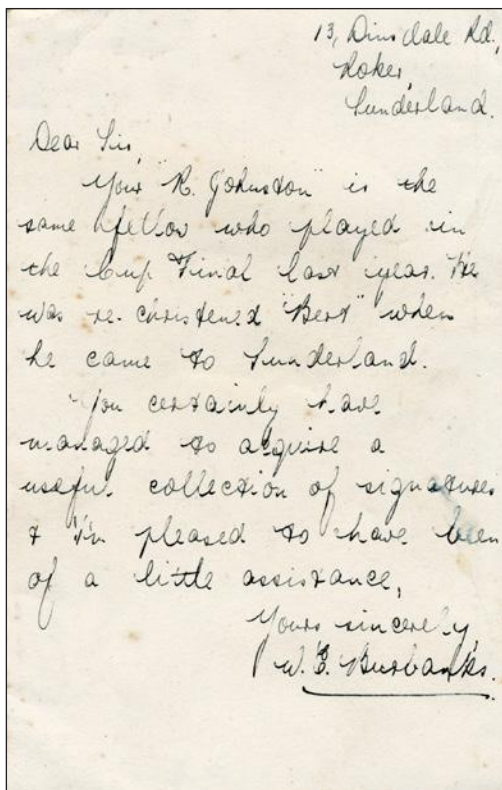 13, Dinsdale Rd.,
Roker,
Sunderland.
Dear Sir,
Your "R. Johnston" is the
same fellow who played in
the Cup Final last year. He
was re-christened "Bert" when
he came to Sunderland.
You certainly have
managed to acquire a
useful collection of signatures
& I'm pleased to have been
of a little assistance,
Yours sincerely,
W. E. Burbanks.